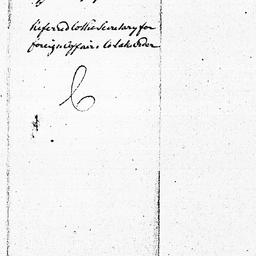 Referred to the Secretary for
foreign Affairs to take Order